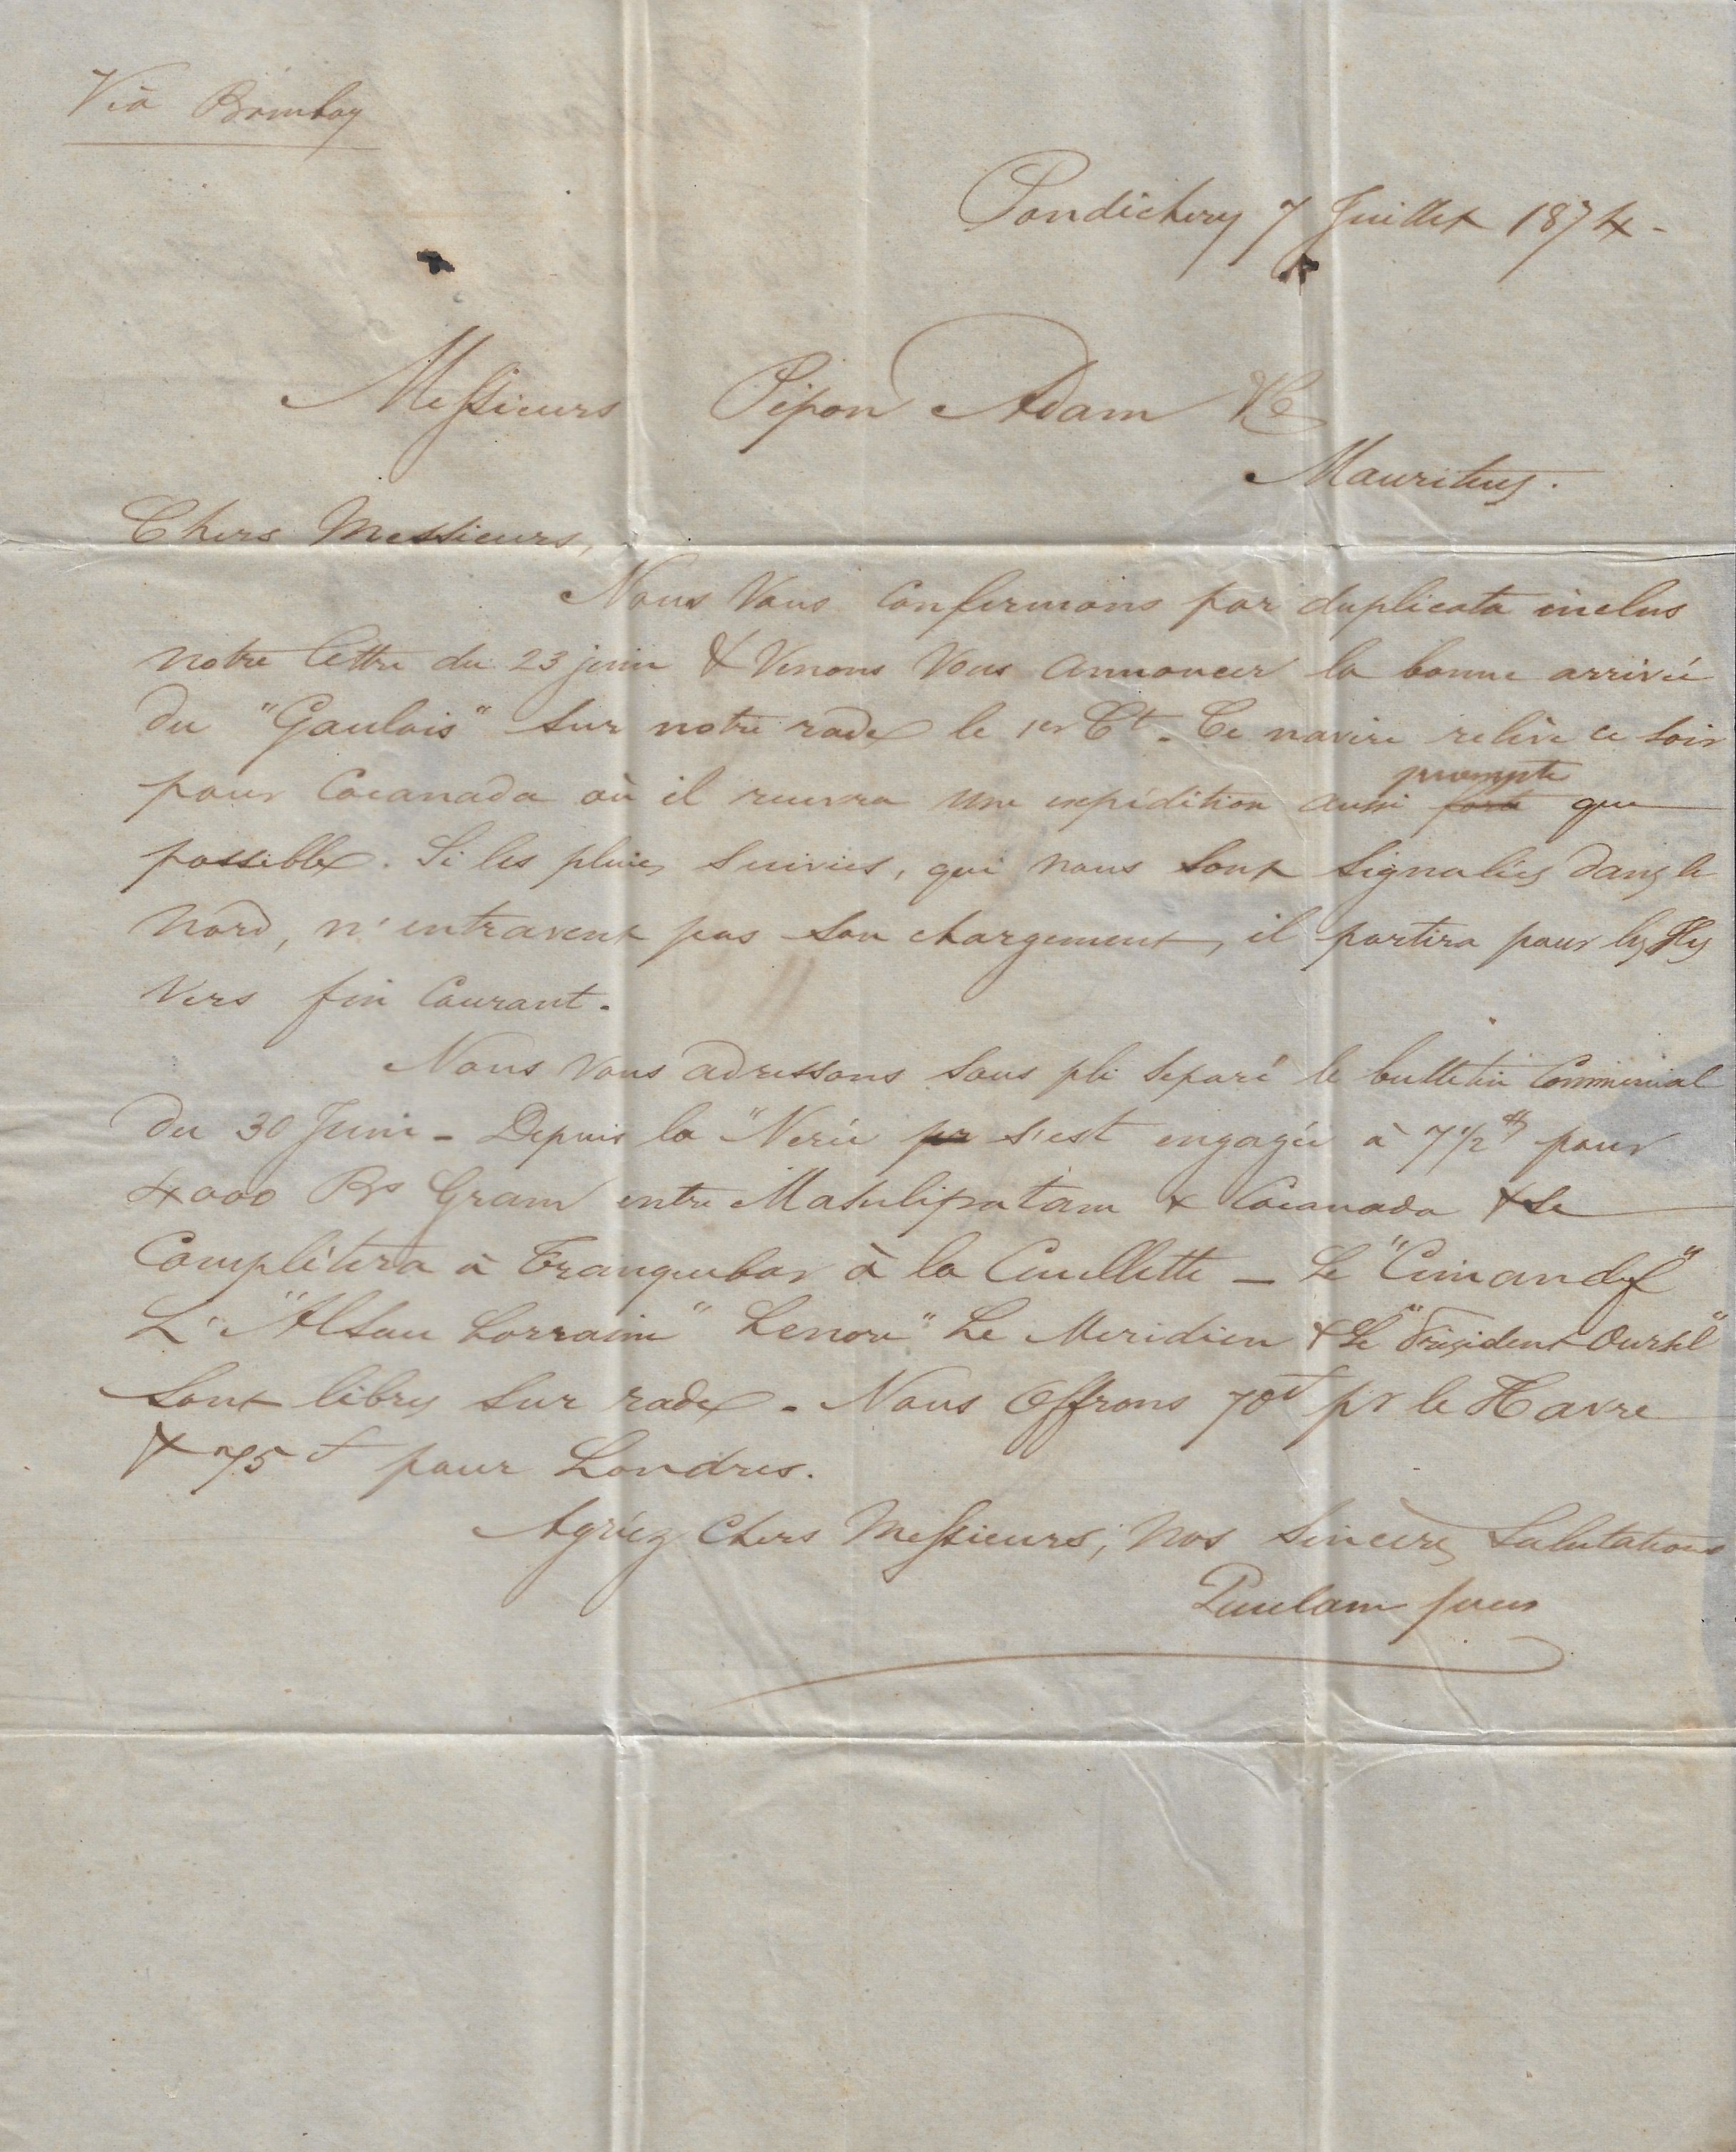 Via Bombay
Pondichery 7 Juillet 1874 -
Messieurs Pipon Adam &Ce
Mauritius.
Chers Messieurs,
Nous Vous Confirmons par duplicata inclus
notre lettre du 23 juin & Venons Vous annoncer la bonne arrivée
du "Gaulois" sur notre rade le 1er Ct. Ce navire relève ce soir
prompte
pour Cocanada où il recevra une expédition aussi que
possible. Si les pluies suivies, qui nous sont signalées dans le
Nord, n'entravent pas son chargement, il partira pour
Vers fin Courant.
Nous Vous adressons sous pli separé le bulletin Commercial
du 30 Juin - Depuis la "Nerée s'est engagée à 7 1/2 pour
4000 Bs Gram entre Masulipatam & Cocanada & se
Complètera à Tranquebar à la Cueillette - Le "Cimandef"
L'"Alsace Lorraine" "Lenore" Le Meridien & Le "Président Oursel"
sont libres sur rade. Nous Offrons 70f pr le Havre
& 75f pour Londres.
Agréez Chers Messieurs, nos sincères Salutations